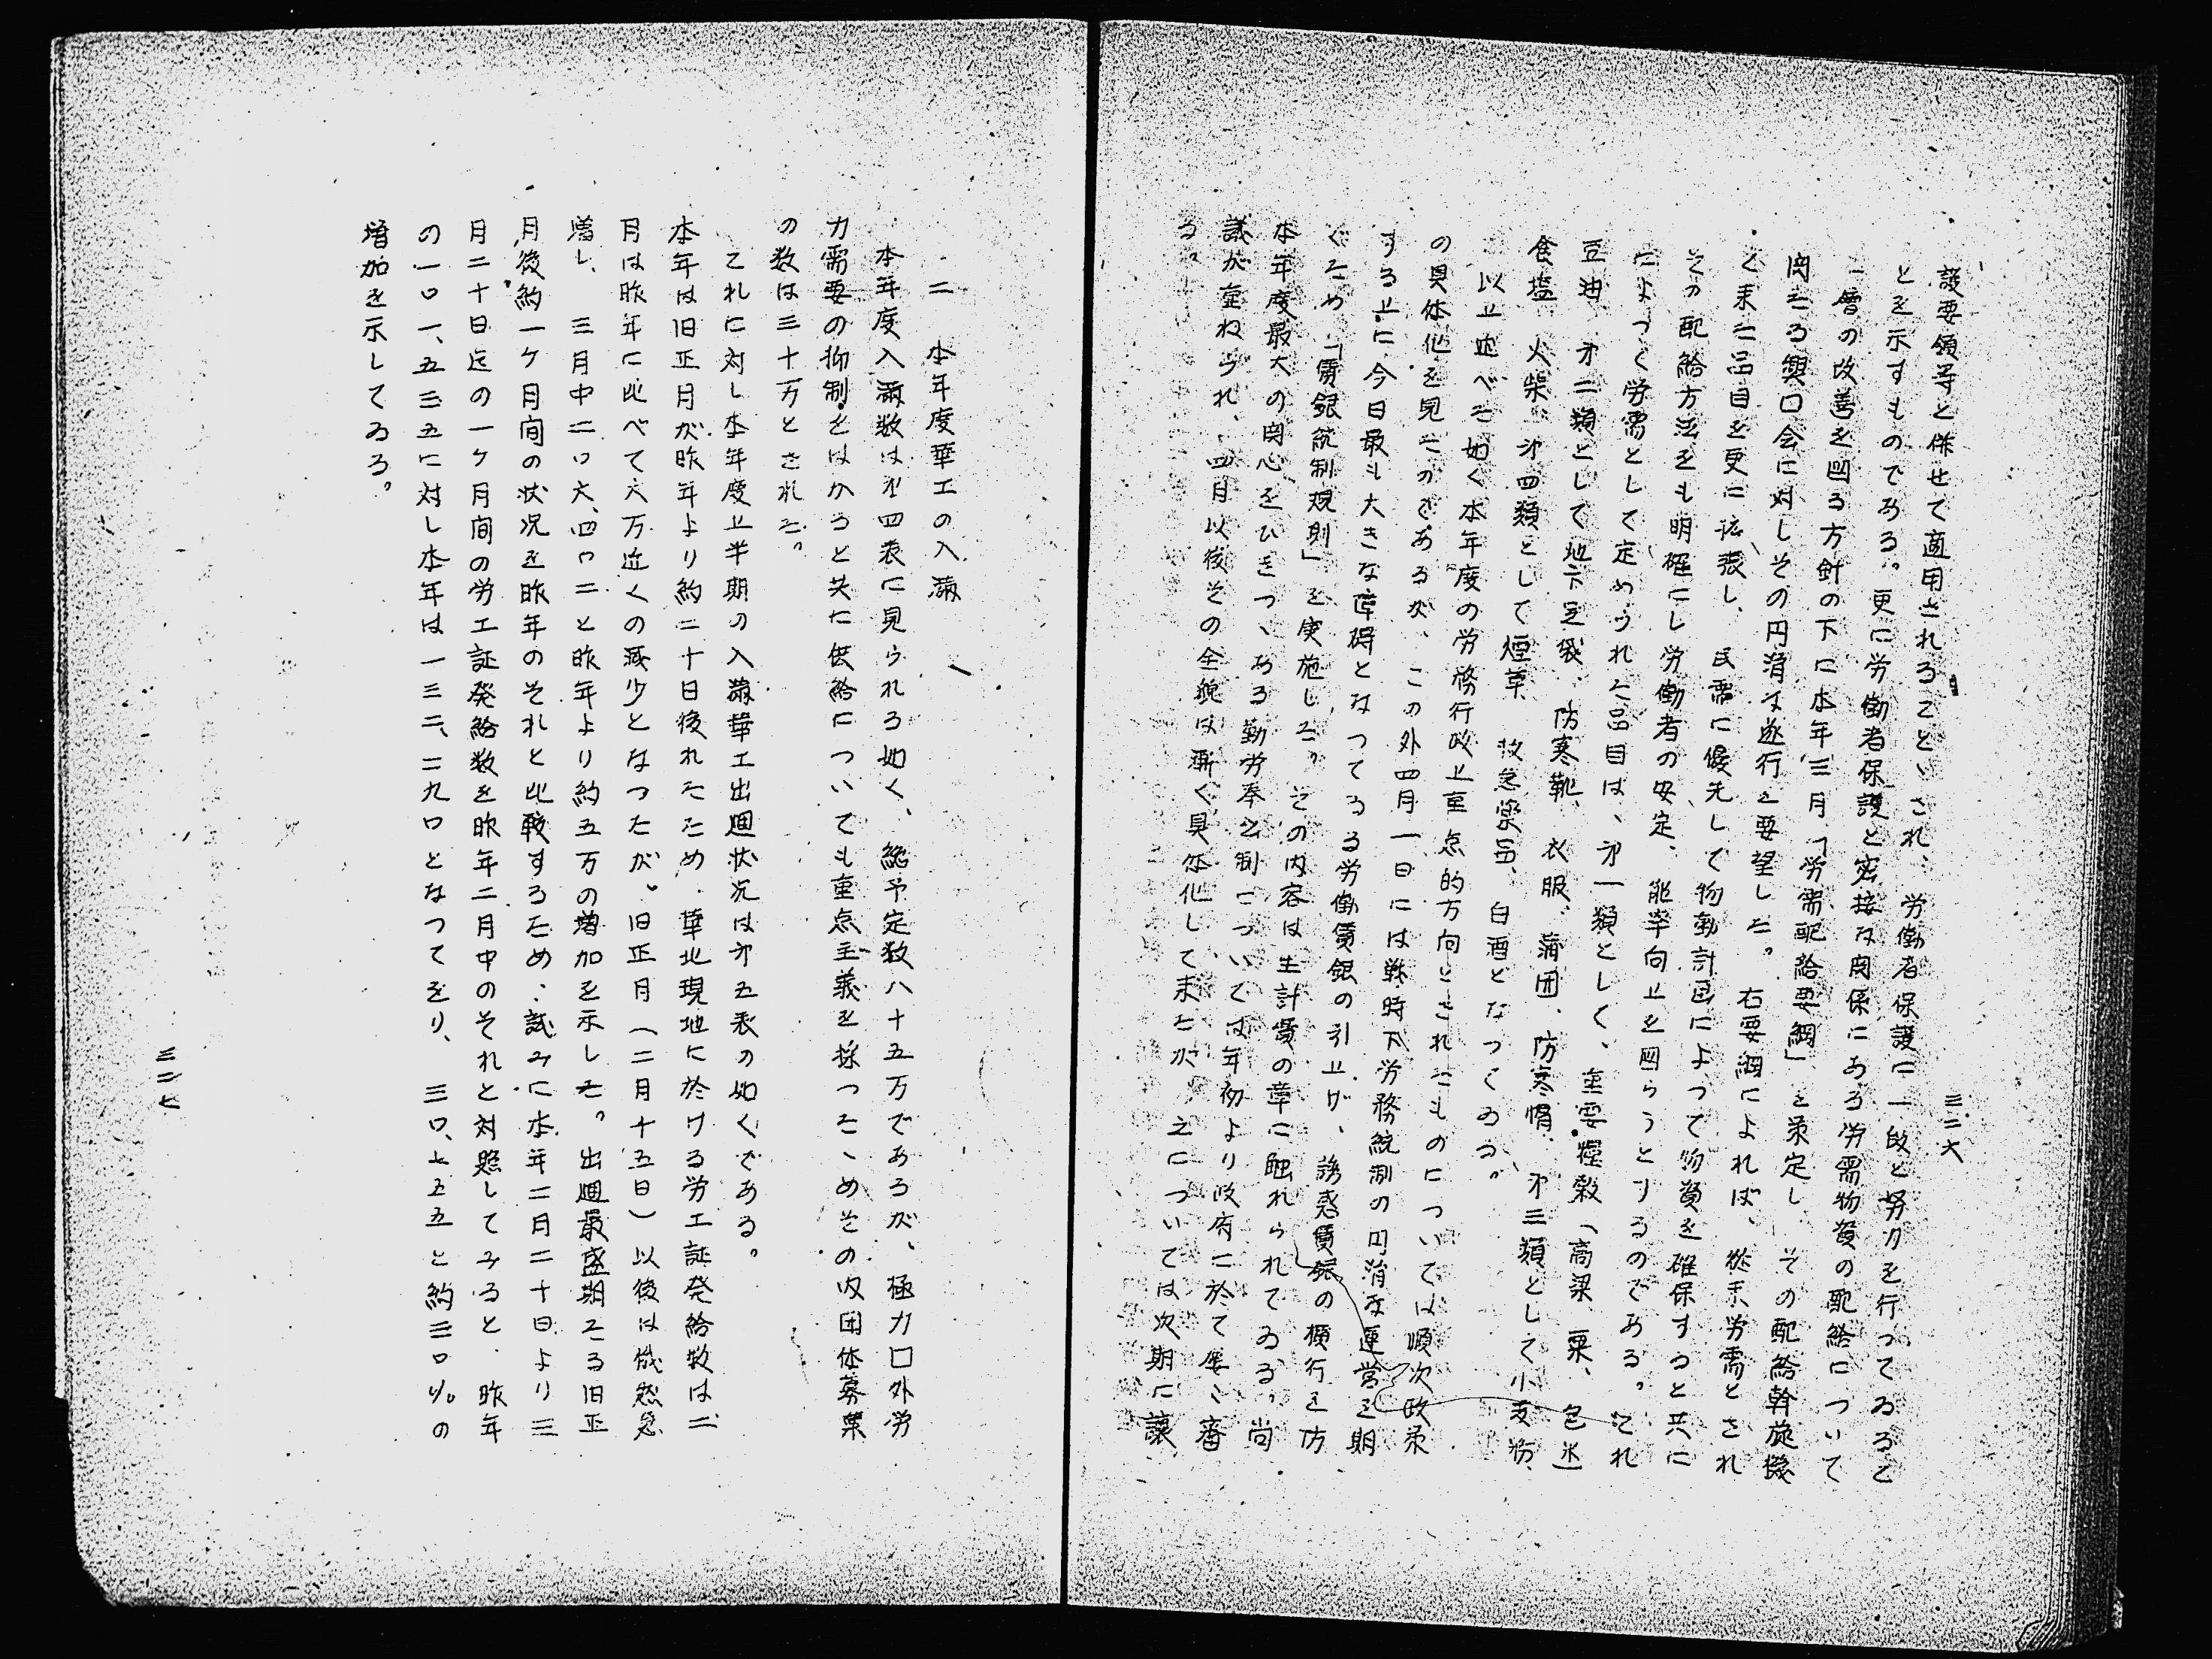 三二六
護要領等と併せて適用されることゝされ、労働者保護に一段と努力を行つてゐるこ
とを示すものである。更に労働者保護と密接な関係にある労需物資の配給について
一層の改善を図る方針の下に本年三月「労需配給要綱」を策定し、その配給幹旋機
関たる興口会に対しその円滑な遂行を要望した。右要綱によれば、従来労需とされ
て来た品目を更に拡張し、民需に優先して物動計画によつて物資を確保すると共に
その配給方法をも明確にし労働者の安定、能率向上を図らうとするのである。これ
によつて労需として定められた品目は、才一類として、主要糧穀（高梁、粟、包米）
豆油、才二類として地下足袋、防寒靴、衣服、蒲団、防寒帽、才三類として小麦粉、
食塩、火柴、才四類として煙草、救急薬品、白酒となつてゐる。
以上述べた如く本年度の労務行政上重点的方向とされたものについては順次政策
の具体化を見たのであるが、この外四月一日には戦時下労務統制の円滑な運営を期
する上に今日最も大きな障碍となつてゐる労働賃銀の引上げ、誘惑賃銀の横行を防
ぐため「賃銀統制規則」を実施した。その内容は生計費の章に触れられてゐる。尚
本年度最大の関心をひきつゝある勤労奉公制については年初より政府に於て屡々審
議が重ねられ、四月以後その全貌は漸く具体化して来たが、之については次期に譲
る。
二　本年度華工の入満
本年度入満数は才四表に見られる如く、総予定数八十五万であるが、極力口外労
力需要の抑制をはかると共に供給についても重点主義を採つたゝめその内団体募集
の数は三十万とされた。
これに対し本年度上半期の入満華工出廻状況は才五表の如くである。
本年は旧正月が昨年より約二十日後れたため、華北現地に於ける労工証発給数は二
月は昨年に比べて六万近くの減少となつたが、旧正月（二月十五日）以後は俄然急
増し、三月中二〇六、四〇二と昨年より約五万の増加を示した。出廻最盛期たる旧正
月後約一ケ月間の状況を昨年のそれと比較するため、試みに本年二月二十日より三
月二十日迄の一ケ月間の労工証発給数を昨年二月中のそれと対照してみると、昨年
の一〇一、五三五に対し本年は一三二、二九〇となつてをり、三〇、七五五と約三〇％の
増加を示してゐる。
三二七